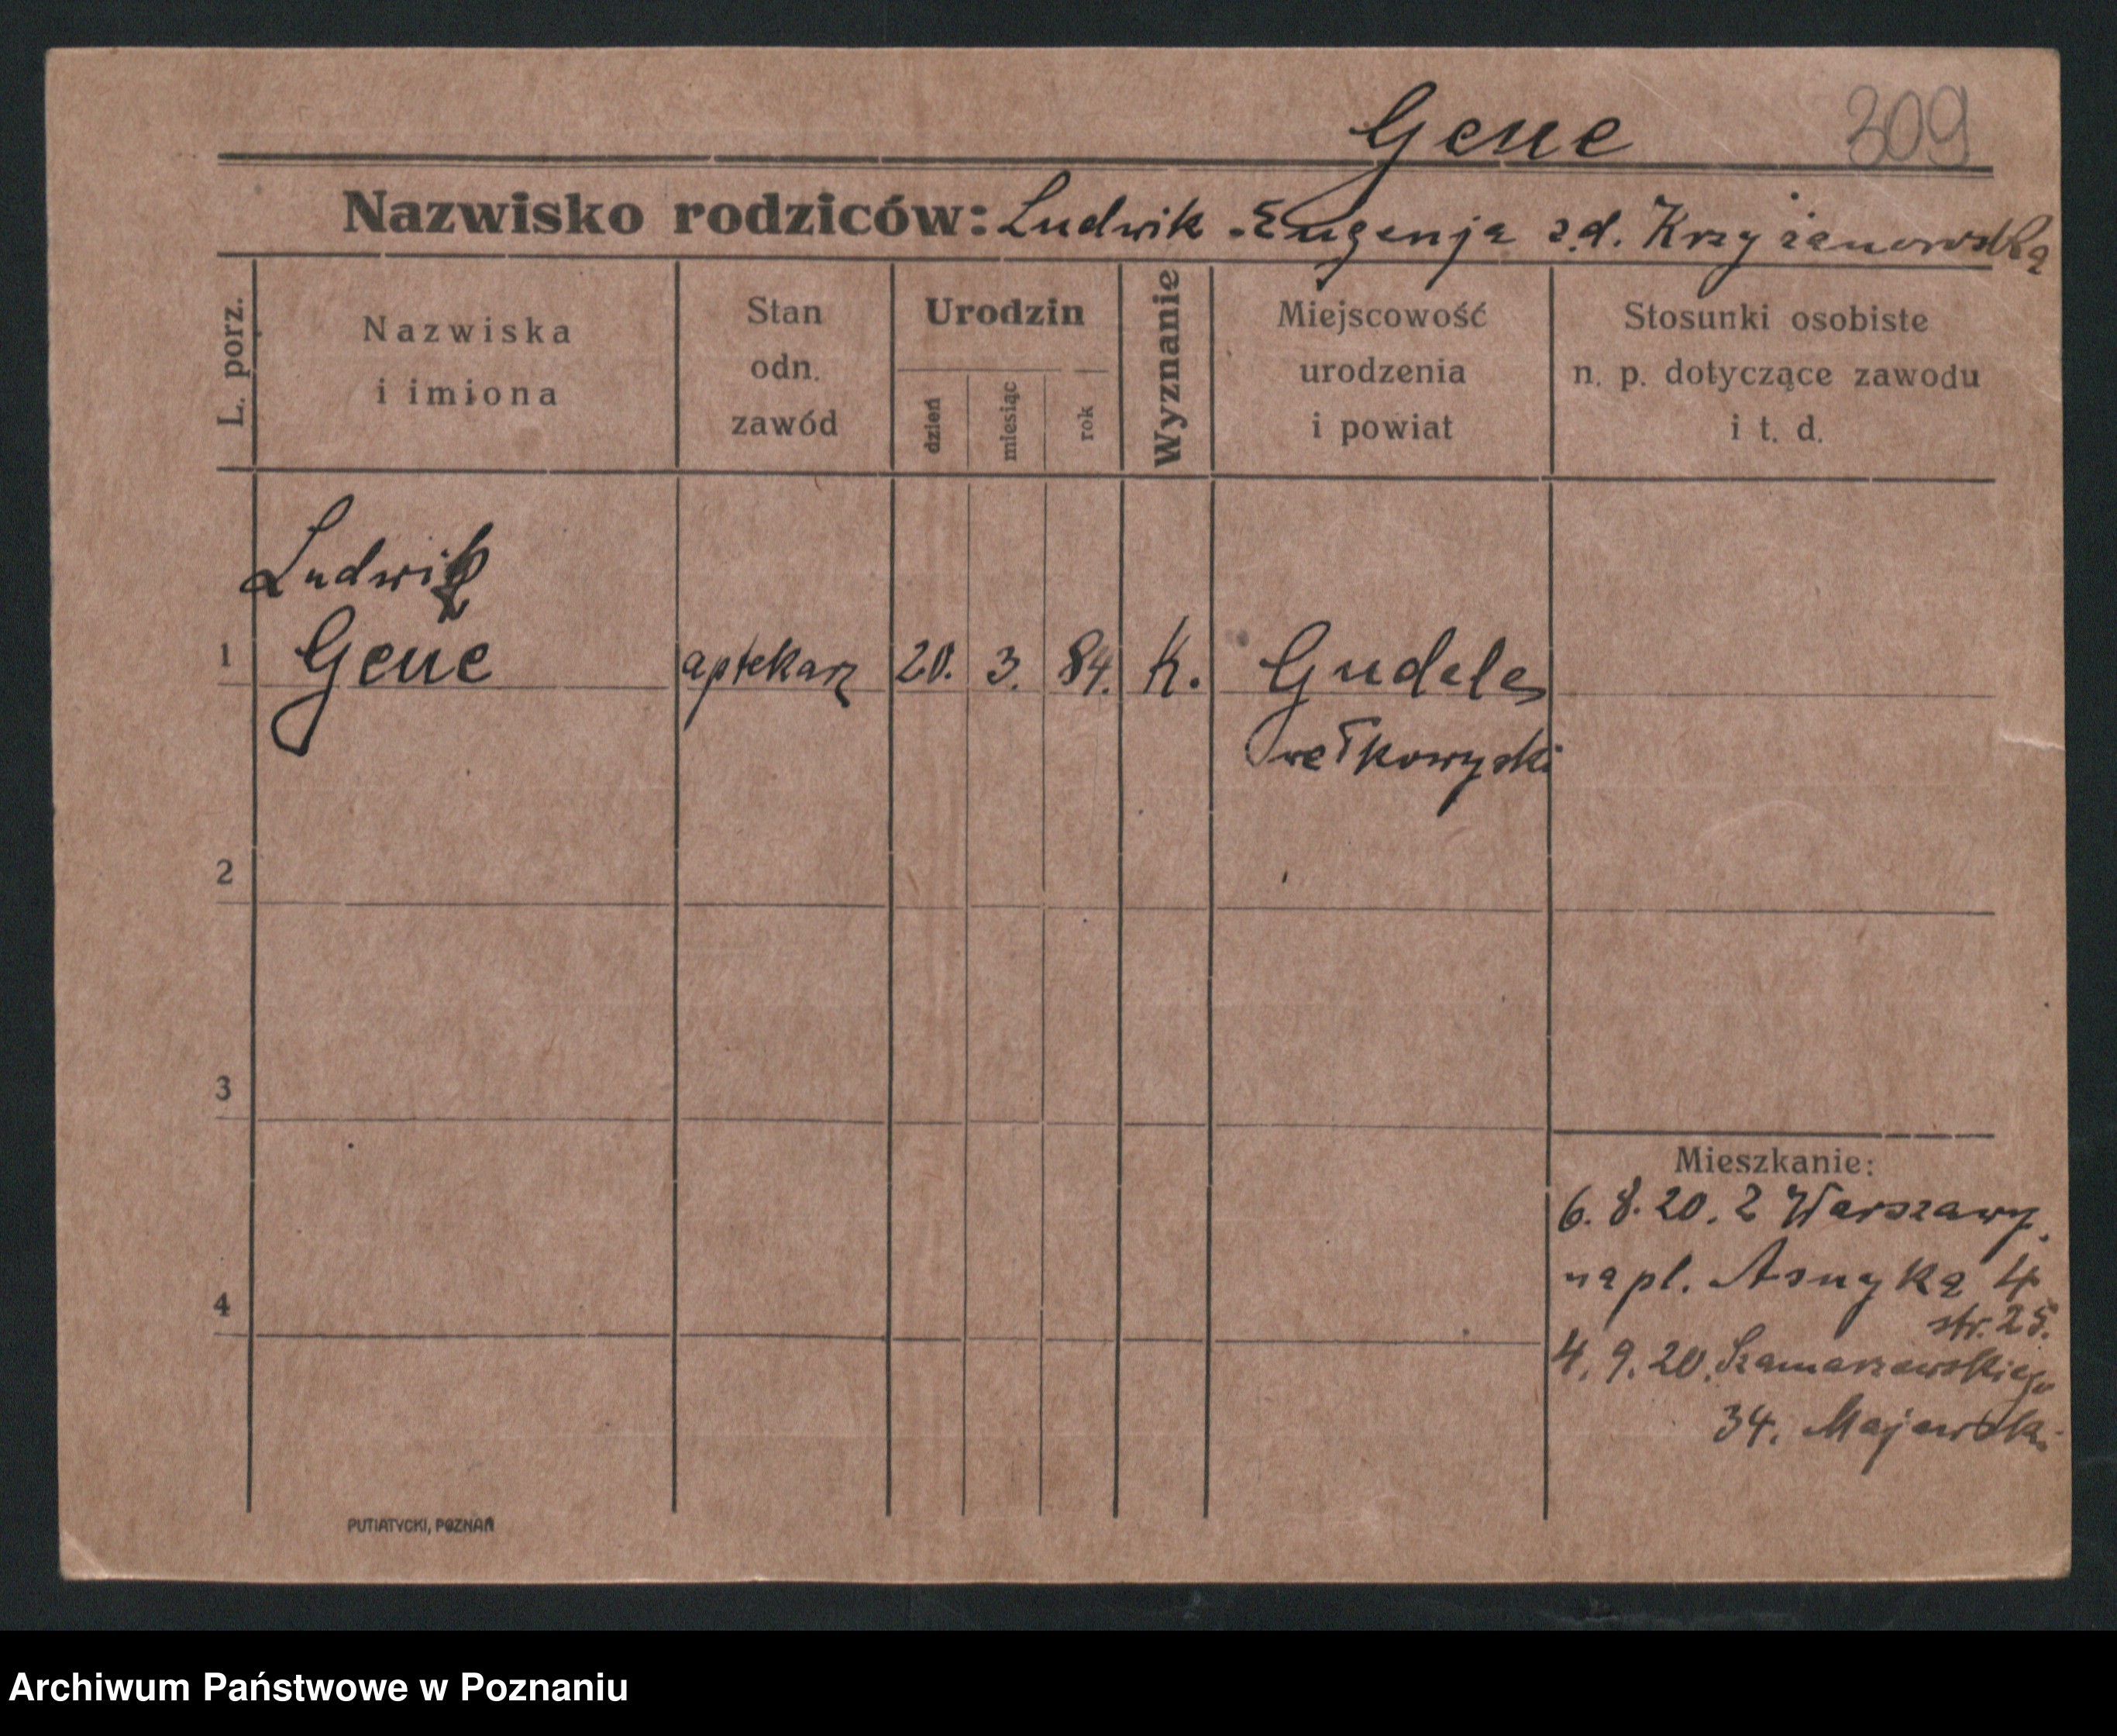 Gene 309
Nazwisko rodziców: Ludwik - Eugenja z d. Krzyżanowska
L. porz.
Nazwiska i imiona
Stan odn. zawód
Urodzin
dzień
miesiąc
rok
Wyznanie
Miejscowość urodzenia i powiat
Stosunki osobiste n. p. dotyczące zawodu i t. d.
Ludwik
1 Gene aptekarz 20. 3. 84. K. Gudele
wełkowyski
2
3
Mieszkanie:
6. 8. 20. z Warszawy.
na pl. Asnyka 4
str. 25.
4
4. 9. 20. Szamarzewskiego
34. Majewski
PUTIATYCKI, POZNAŃ
Archiwum Państwowe w Poznaniu